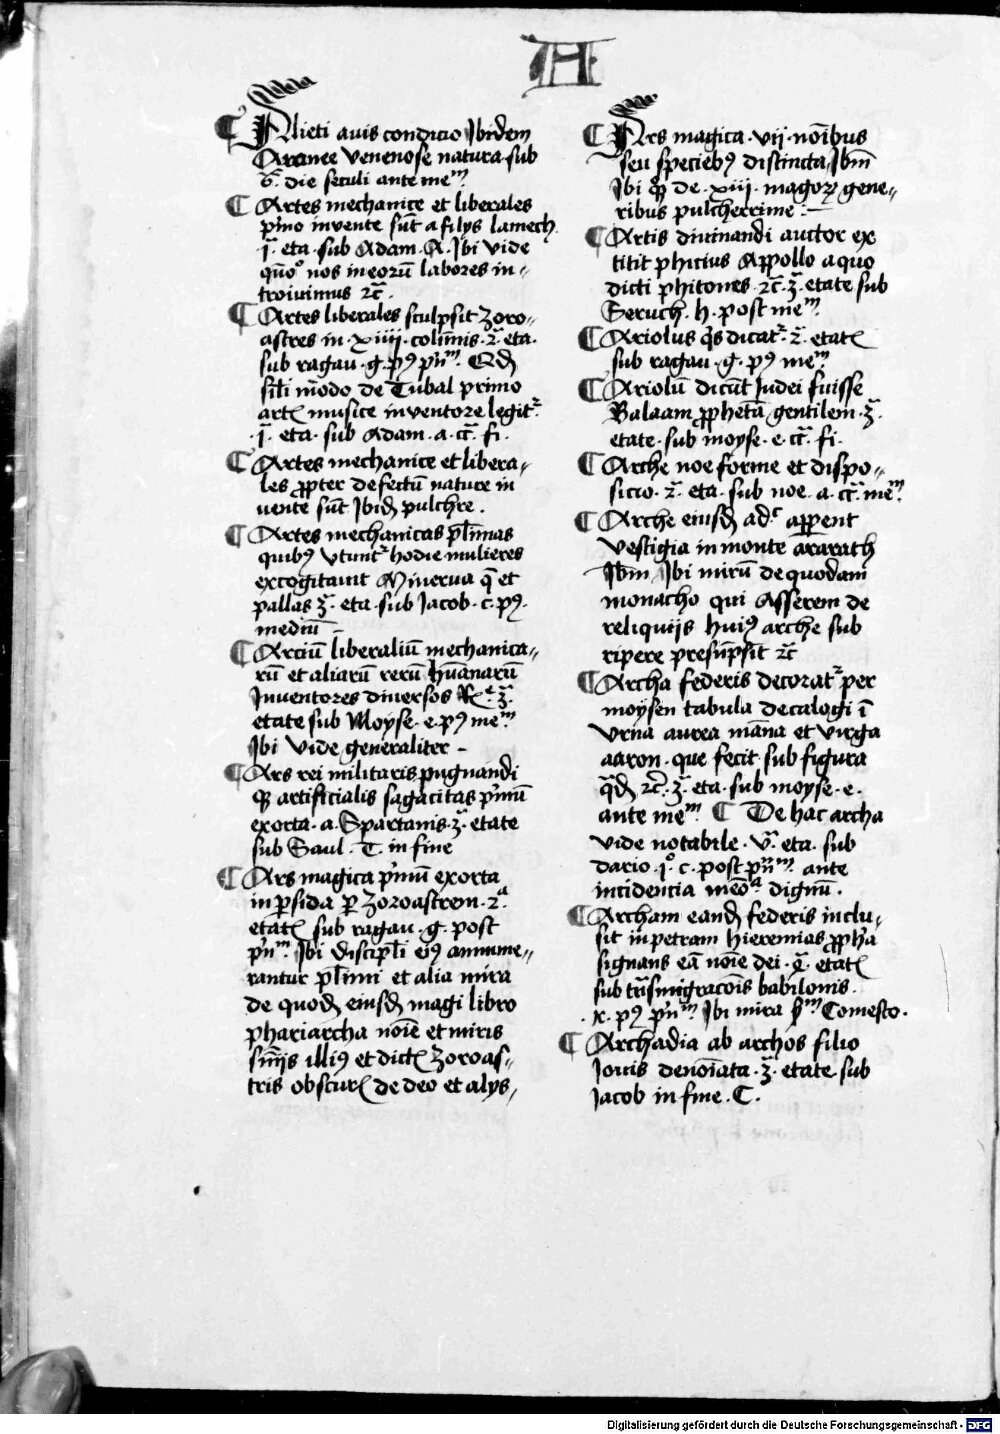 A
¶ Alieti auis condicio Ibidem
Aranee venenose natura sub
6ͣ. die seculi ante meᵐ.
¶ Artes mechanice et liberales
pͥmo invente sūt a filijs lamech
.j.ͣ eta. sub Adam. A. Ibi vide
qūo⁹ nos in eorū labores in-
troiuimus ⁊c̄.
¶ Artes liberales sculpsit Zoro-
astres in .xiiii. colūmis .2.ͣ eta.
sub ragau .g. p⁹ pn̄ᵐ. Qd̄
sil̄i mōdo de Tubal primo
artꝭ musice inventore legitᷣ.
.j.ͣ eta. sub Adam .a. cr̄ͣ. fi.
¶ Artes mechanice et libera-
les ꝓpter defectū nature in
uente sūt Ibid̄ pulchre.
¶ Artes mechanicas pl̄imas
quib⁹ vtuntᷣ hodie mulieres
excogitauit Minerua q̄ et
pallas .3.ͣ eta. sub Jacob .c. p⁹.
mediū –
¶ Arciū liberaliū mechanica-
rū et aliarū rerū hūanarū
Inuentores diuersos Rͤ. .3.ͣ
etate sub Moyse .e. p⁹ meᵐ.
Ibi vide generaliter –
¶ Ars rei militaris pugnandi
qꝫ artificialis sagacitas pͥmū
exorta .a. Spartanis .3.ͣ etate
sub Saul. T. in fine
¶ Ars magica pͥmū exorta
in p̱sida p̱ Zoroastrem .2.ͣ
etatꝭ sub ragau .g. post
pn̄ᵐ. Ibi discipl̄i ei⁹ annume-
rantur pl̄imi et alia mira
de quod̄ eiusd̄ magi libro
phariarcha noīe et miris
sn̄ijs illi⁹ et dictꝭ Zoroas-
tris obscurꝭ de deo et alijs,
¶ Ars magica .vij. noībus
seu specieb⁹ distincta, Ibm̄
Ibi qͦꝫ de .xiii. magoꝝ gene-
ribus pulcherrime :–
¶ Artis diuinandi auctor ex
titit phicius Appollo a quo
dicti phitones ⁊c̄. .3.ͣ etate sub
Seruch .h. post meᵐ.
¶ Ariolus q̱s dicatᷣ .2.ͣ etatꝭ
sub ragau .g. p⁹ meᵐ.
¶ Ariolū dicūt Iudei fuisse
Balaam ꝓphetā gentilem .3.ͣ
etate sub moyse .e. cr̄ͣ. fi.
¶ Arche noe forme et dispo-
sicio .2.ͣ eta. sub noe .a. cr̄ͣ. meᵐ.
¶ Arche eiusd̄ adᶜ apparent
vestigia in monte ararath
Ibm̄, Ibi mirū de quodam
monacho qui Asserem de
reliquijs hui⁹ arche sub
ripere presūpsit ⁊c̄
¶ Archa federis decoratᷣ per
moysen tabula decalogi ī
vrna aurea māna et virga
aaron. que fecit sub figura
qͣd̄ ⁊c̄. .3.ͣ eta. sub moyse .e.
ante meᵐ. ¶ De hac archa
vide notabile .v.ͣ eta. sub
dario .j.ͦ c. post pn̄ᵐ. ante
incidencia meōͣ dignū.
¶ Archam eand̄ federis inclu-
sit in petram hieremias ꝓph̄a
signans eā noīe dei .4.ͣ etatꝭ
sub trāsmigracōis babilonis.
.x. p⁹ pn̄ᵐ. Ibi mira sᵐ Comesto.
¶ Archadia ab archos filio
Iouis denoīata .3.ͣ etate sub
Jacob in fine. C.
Digitalisierung gefördert durch die Deutsche Forschungsgemeinschaft - DFG